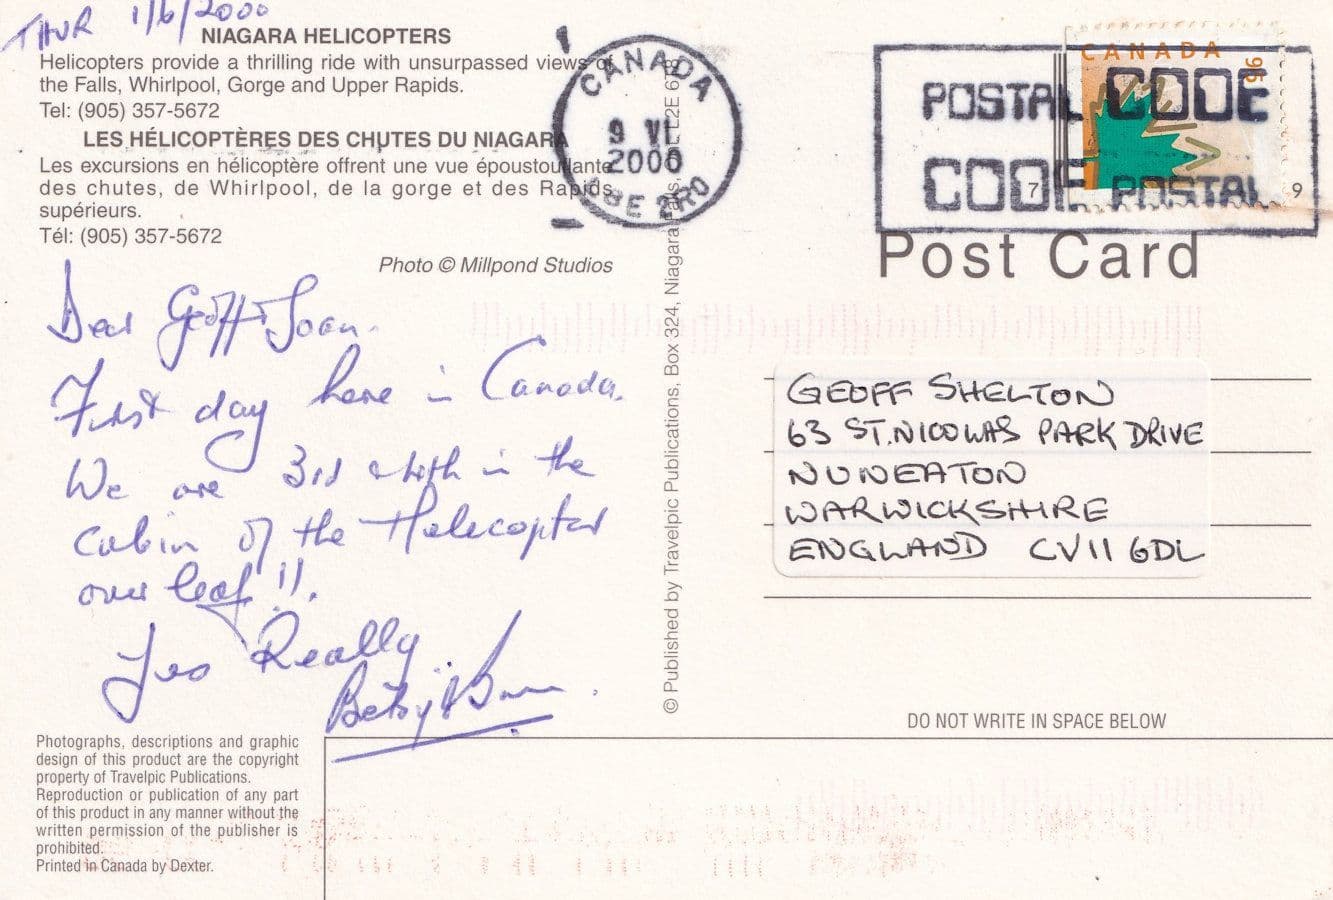 THUR 1/6/2000
NIAGARA HELICOPTERS
Helicopters provide a thrilling ride with unsurpassed views of
the Falls, Whirlpool, Gorge and Upper Rapids.
Tel: (905) 357-5672
LES HÉLICOPTÈRES DES CHUTES DU NIAGARA
Les excursions en hélicoptère offrent une vue époustouflante
des chutes, de Whirlpool, de la gorge et des Rapids
supérieurs.
Tél: (905) 357-5672
Photo © Millpond Studios
Dear Geoff & Joan.
First day here in Canada.
We are 3rd & 4th in the
cabin of the Helecopter
over leaf !!.
Yes Really
Betsy &
Photographs, descriptions and graphic
design of this product are the copyright
property of Travelpic Publications.
Reproduction or publication of any part
of this product in any manner without the
written permission of the publisher is
prohibited.
Printed in Canada by Dexter.
© Published by Travelpic Publications, Box 324, Niagara L2E 6T8
CANADA
9 VI
2000
L8E 2R0
POSTAL CODE
CODE POSTAL
CANADA
7
9
Post Card
GEOFF SHELTON
63 ST. NICOLAS PARK DRIVE
NUNEATON
WARWICKSHIRE
ENGLAND CV11 6DL
DO NOT WRITE IN SPACE BELOW